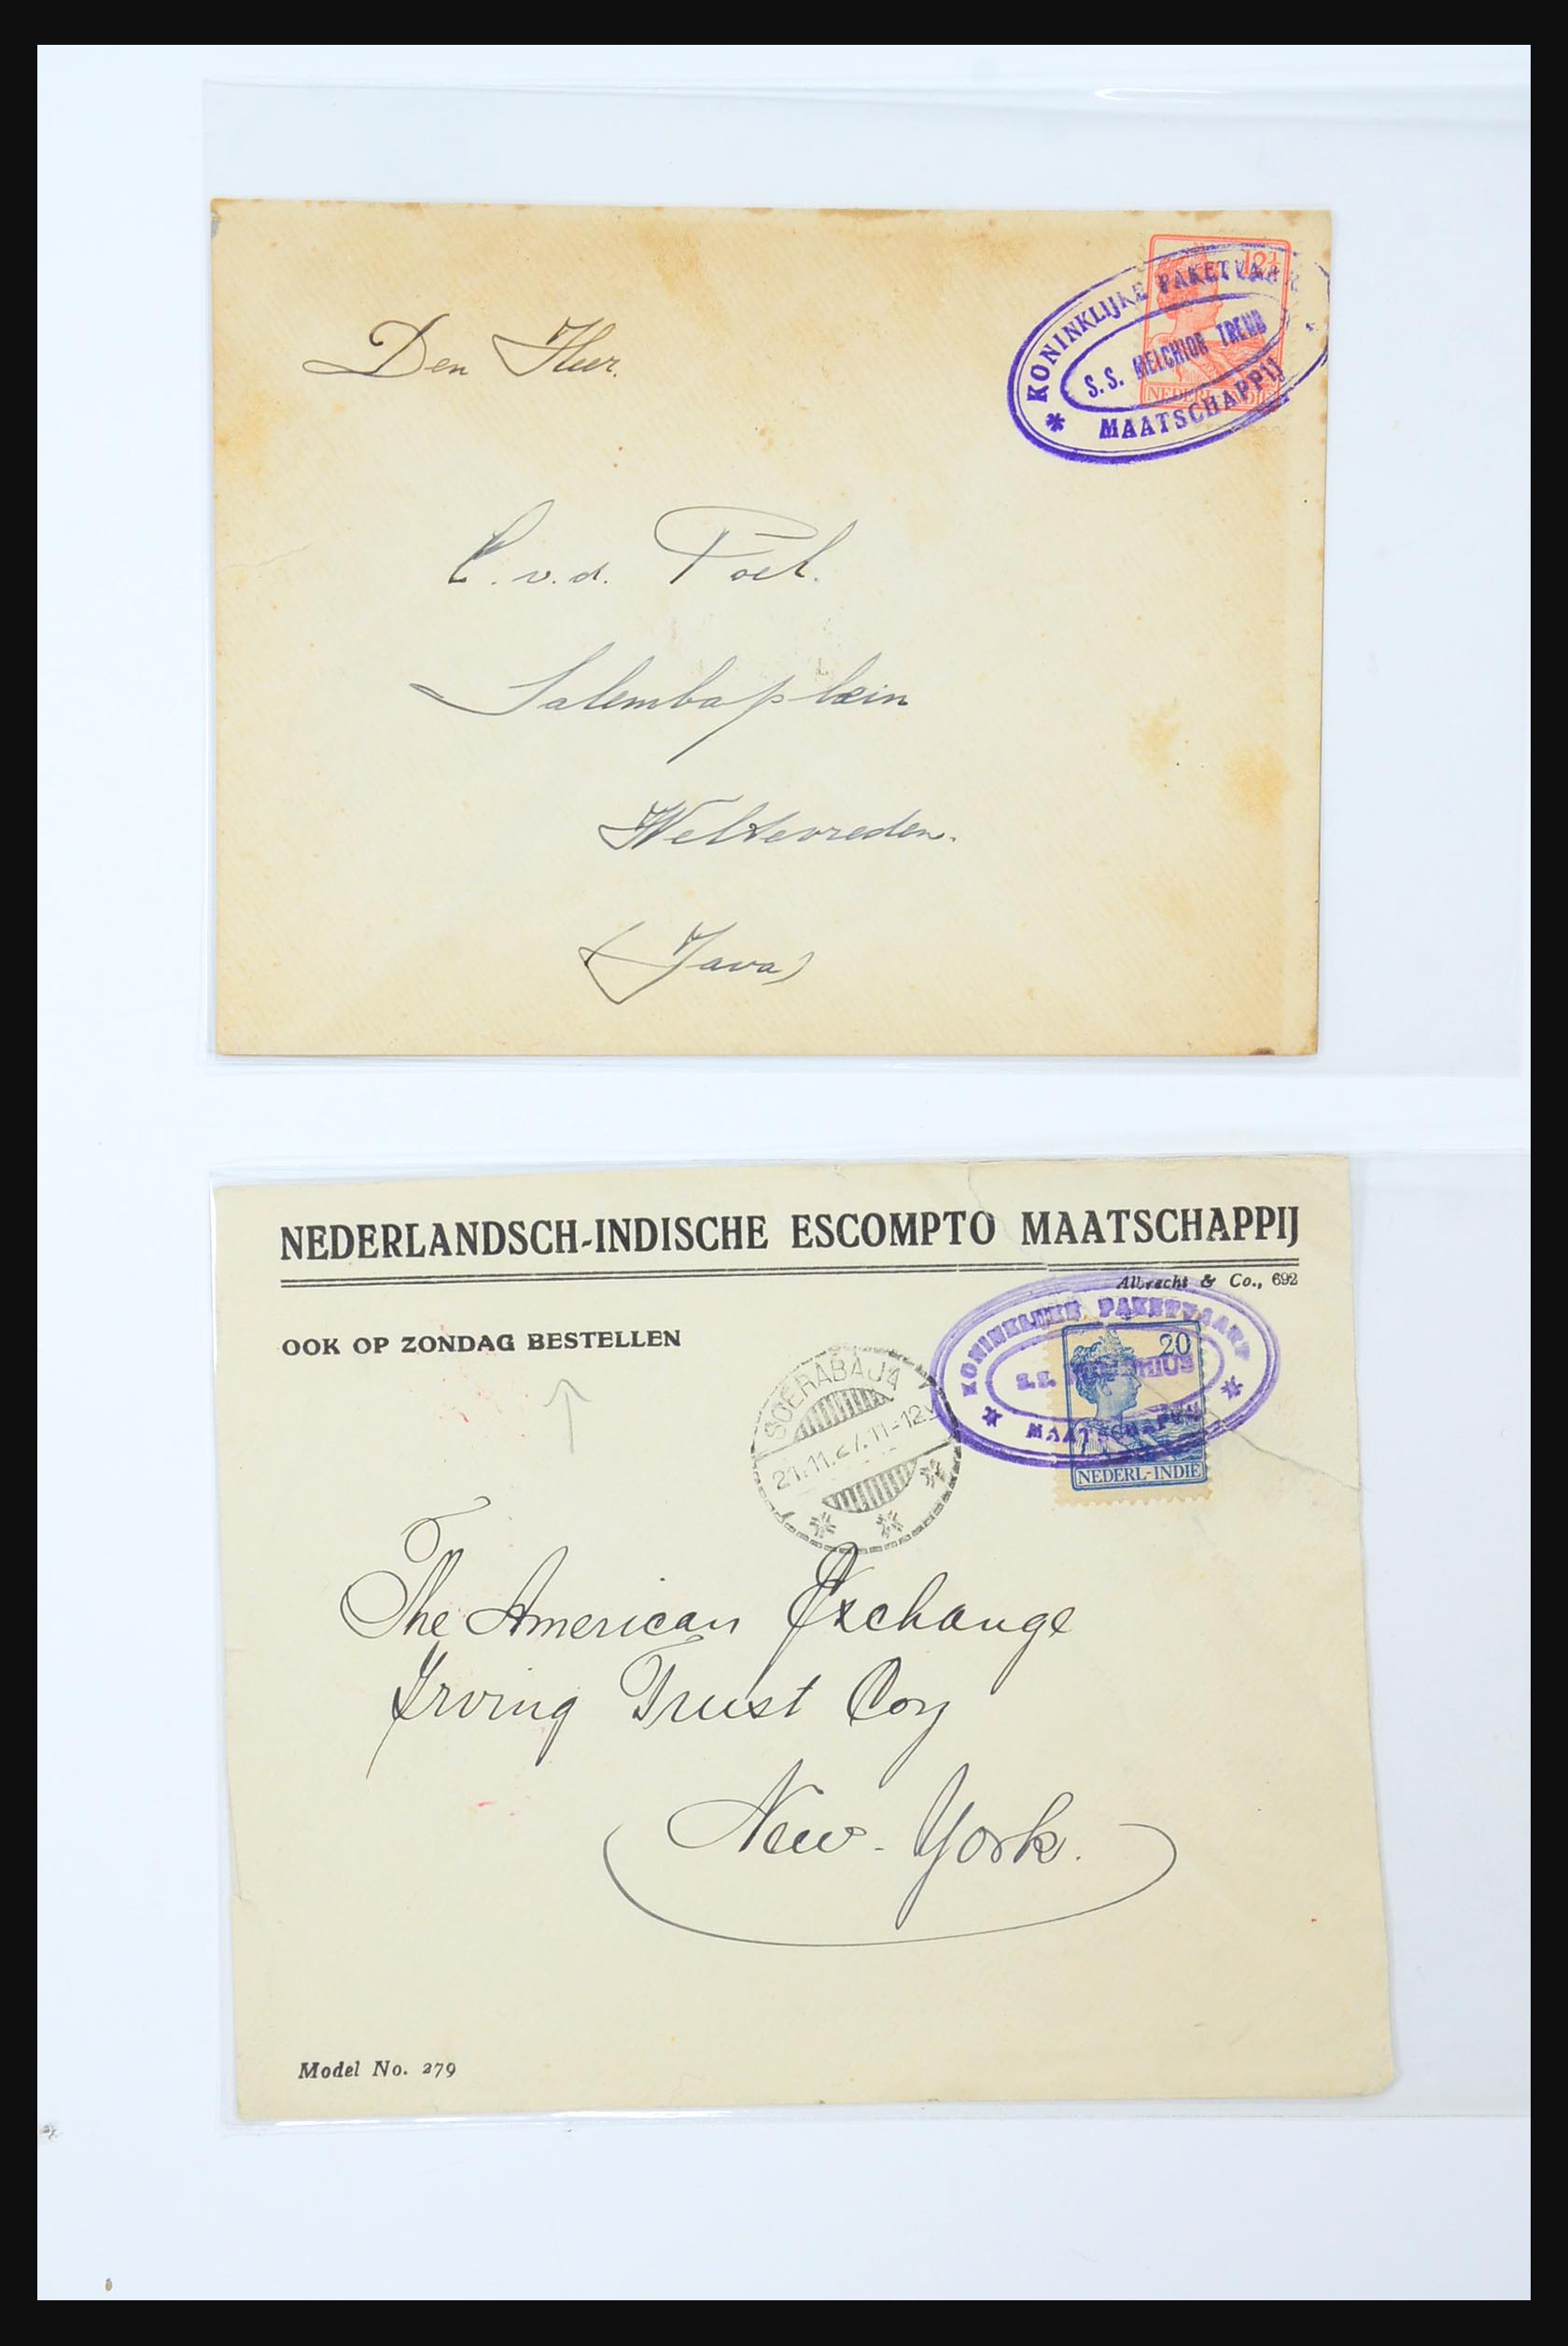 12½
KONINKLIJKE PAKETVAAR
S.S. MELCHIOR TREUB
MAATSCHAPPIJ
NEDERL-INDIE
Den Heer.
C. v.d. Poel.
Salembaplein
Weltevreden.
(Java)
NEDERLANDSCH-INDISCHE ESCOMPTO MAATSCHAPPIJ
Albrecht & Co., 692
OOK OP ZONDAG BESTELLEN
KONINKLIJKE PAKETVAART
S.S.
MAATSCHAPPIJ
20
NEDERL-INDIE
SOERABAJA
21.11.27.11-12V
The American Exchange
Irving Trust Coy
New-York.
Model No. 279